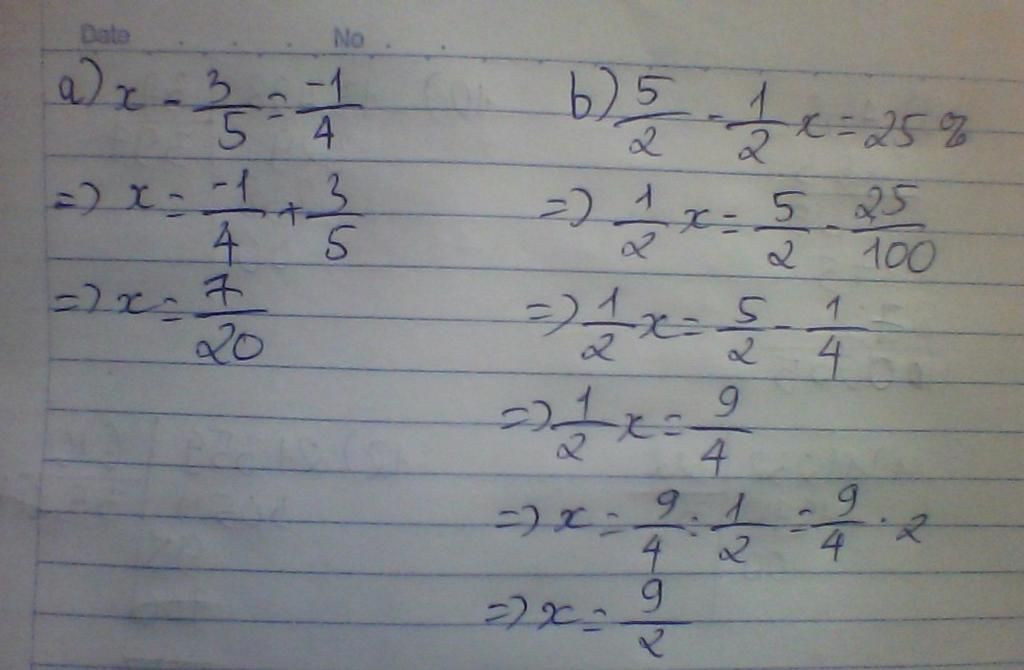 Date No
a) x - 3/5 = -1/4
=) x = -1/4 + 3/5
=) x = 7/20
b) 5/2 - 1/2 x = 25%
=) 1/2 x = 5/2 - 25/100
=) 1/2 x = 5/2 - 1/4
=) 1/2 x = 9/4
=) x = 9/4 : 1/2 = 9/4 · 2
=) x = 9/2